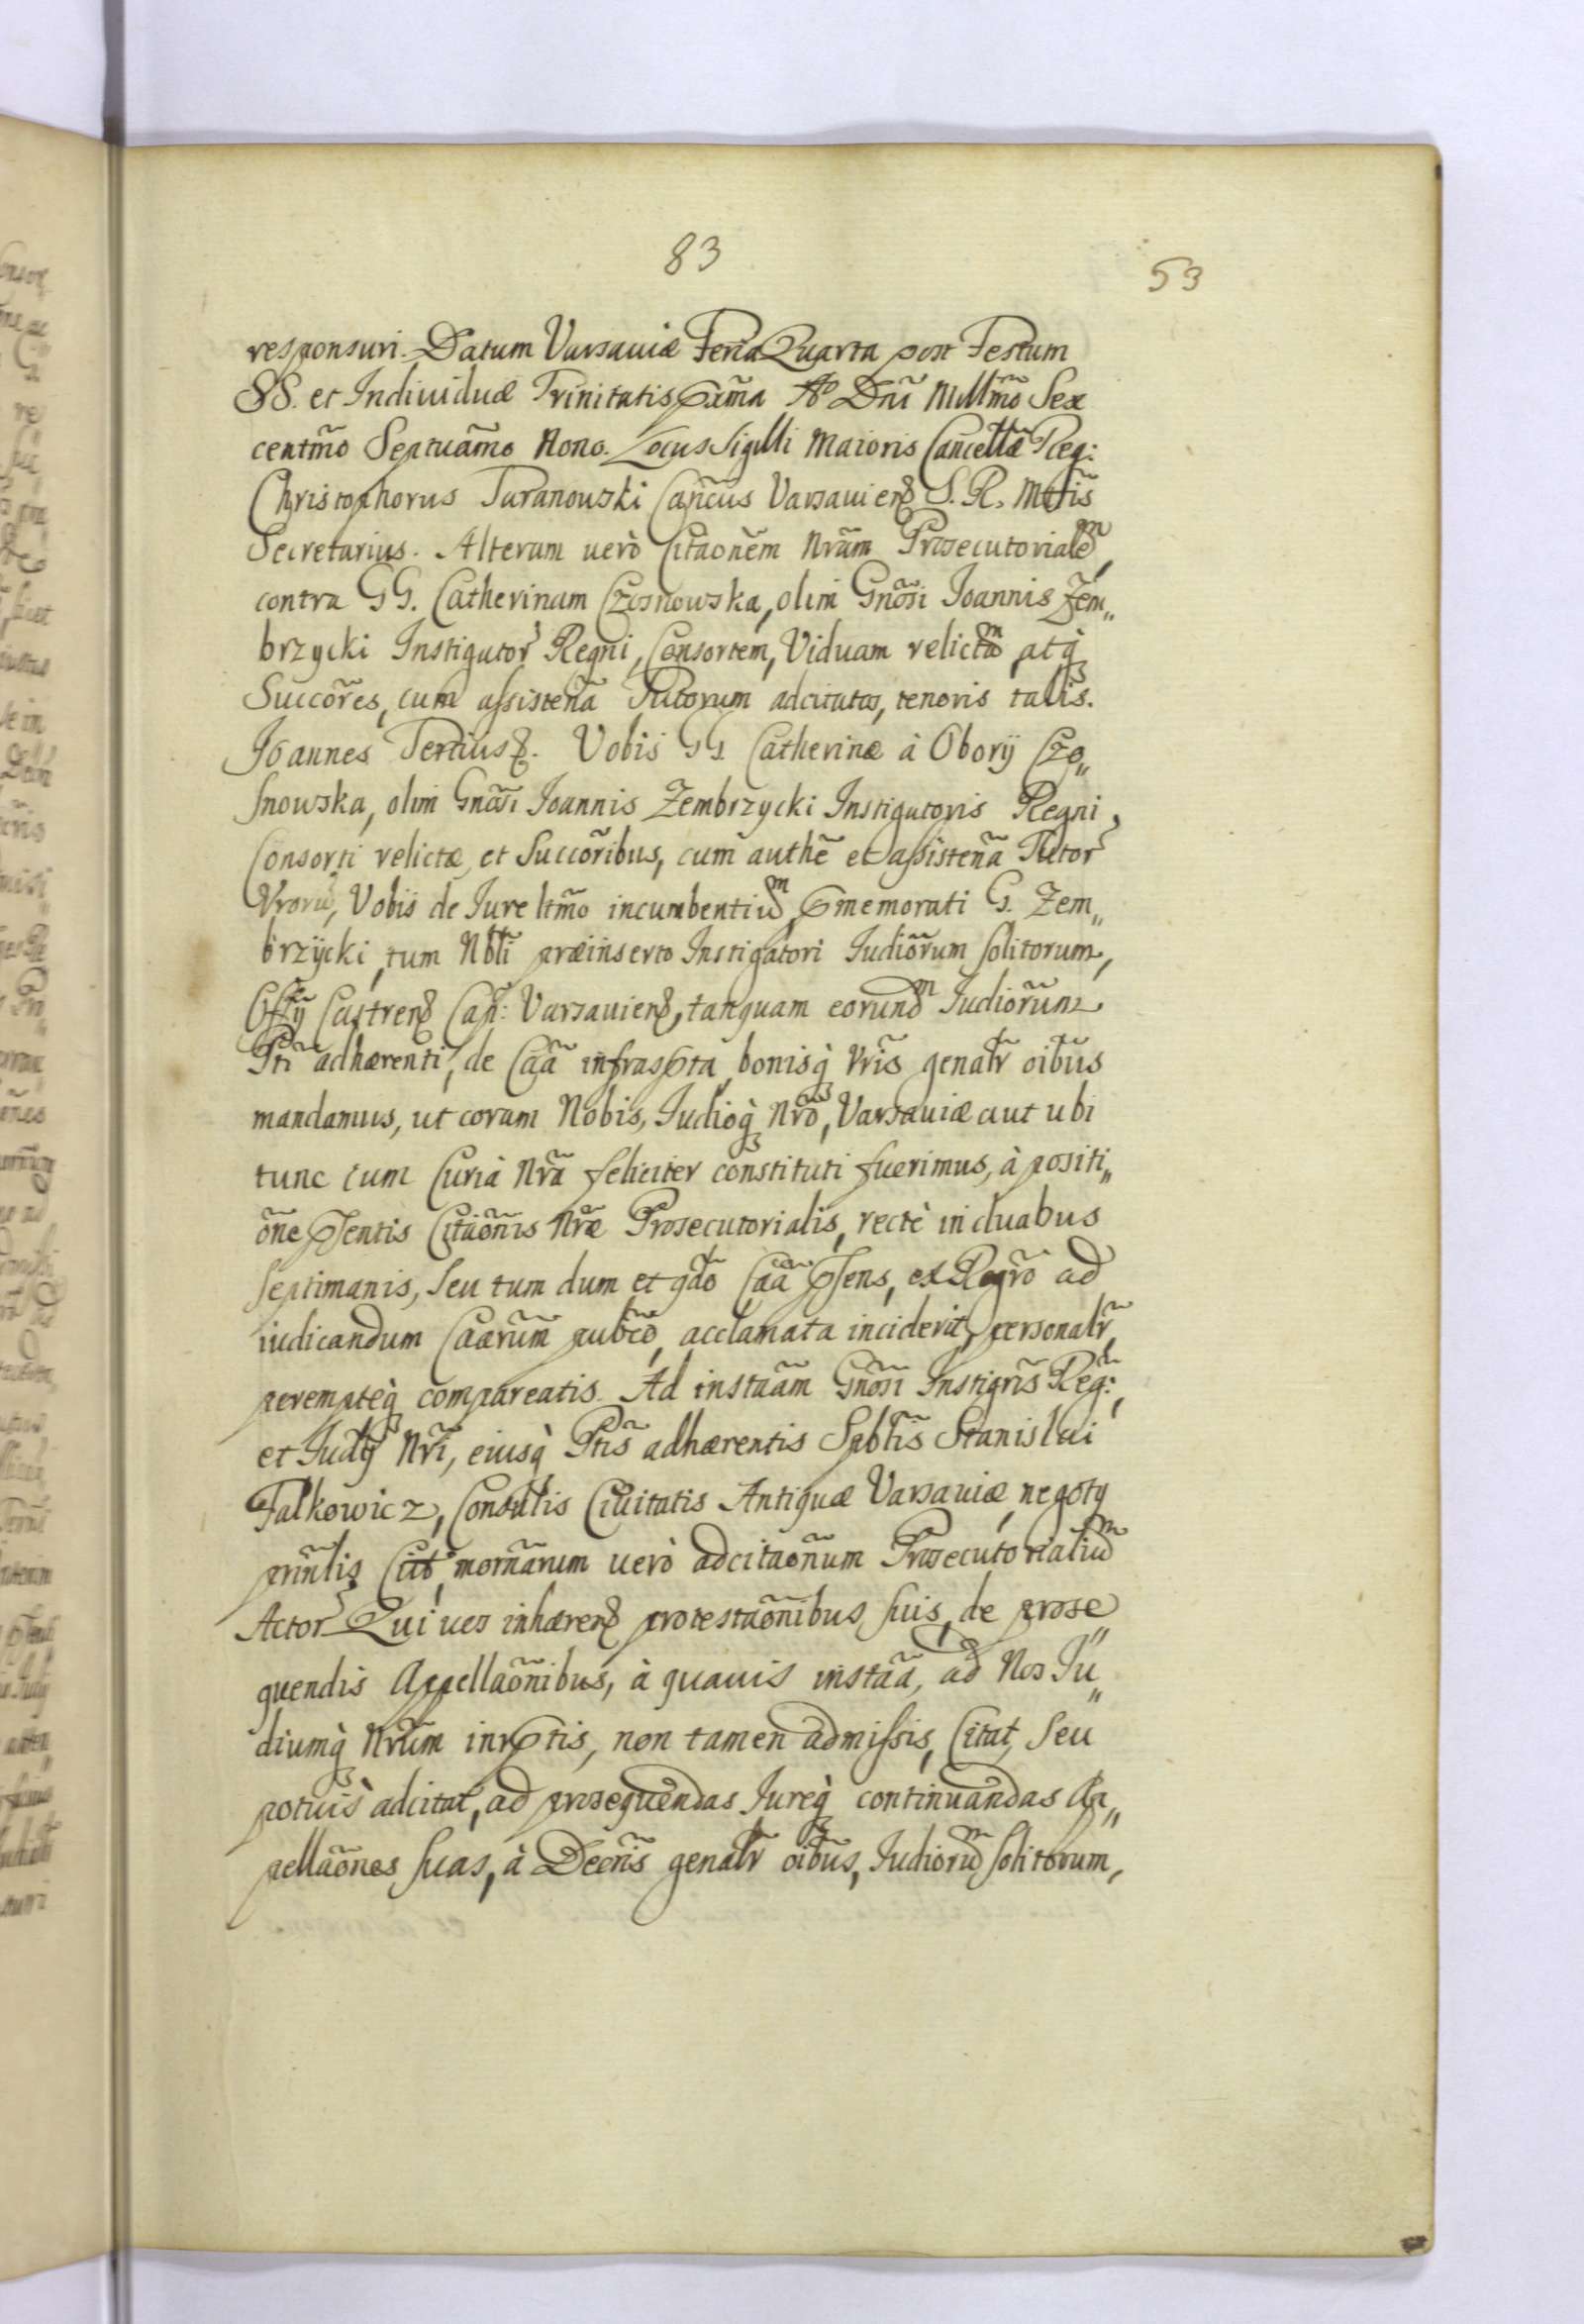 83
53
responsuri. Datum Varsaviæ Feria Quarta post Festum
SS. et Individuæ Trinitatis pxm̃a Aº Dnĩ Millm̃o Sex
centm̃o Septuãmo Nono. Locus Sigilli Maioris Cancellæ̃ Reg:
Christophorus Taranowski Cañcus Varsaviens S. R. Mttĩs
Secretarius. Alteram verò Citaõnem Nrãm Prosecutorialem,
contra GG. Catherinam Czosnowska, olim Gnõsi Joannis Zem„
brzycki Instigator Regni, Consortem, Viduam relictam, atq̀
Succõres, cum assisteñа Tutorum adcitatas, tenoris talis.
Joannes Tertius &. Vobis GG Catherinæ à Obory Czo„
snowska, olim Gnõsi Joannis Zembrzycki Instigatoris Regni,
Consorti relictæ, et Succõribus, cum authẽ et assisteñа Tutor
Vrorũ, Vobis de Jure ltm̃o incumbentium, pmemorati G. Zem„
brzÿcki, tum Nblĩ præinserto Instigatori Judiõrum solitorum,
Offÿ Castrens Cap: Varsaviens, tanquam eorundm Judiõrum
Ptĩ adhærenti, de Cãa infraspta, bonisq̀ Vrĩs genalr̃ oibũs
mandamus, ut coram Nobis, Judioq̀ Nrõ, Varsaviæ aut ubi
tunc cum Curià Nrã feliciter constituti fuerimus, à positi„
õne psentis Citaõnis Nræ̃ Prosecutorialis, rectè in duabus
septimanis, seu tum dum et qdõ Cãa psens, ex Regrõ ad
iudicandum Caarũm pubcõ, acclamata inciderit, personalr̃
perempteq̀ compareatis. Ad instaãm Gnõsi Instigrĩs Reg:,
et Judÿ Nrĩ, eiusq̀ Ptĩs adhærentis Spblĩs Stanislai
Falkowicz, Consulis Civitatis Antiquæ Varsaviæ, negoty
prinlĩs Cit, mornãrum verò adcitaõnum Prosecutorialium
Actor Qui ves inhærens protestaõnibus suis, de prose„
quendis Appellaõnibus, à quavis instãa, ad Nos Ju„
diumq̀ Nrũm inrptis, non tamen admissis, Citat, seu
potuis̀ adcitat, ad prosequendas Jureq̀ continuandas Ap„
pellaõnes suas, à Decrĩs genalr̃ oibũs, Judiorum solitorum,